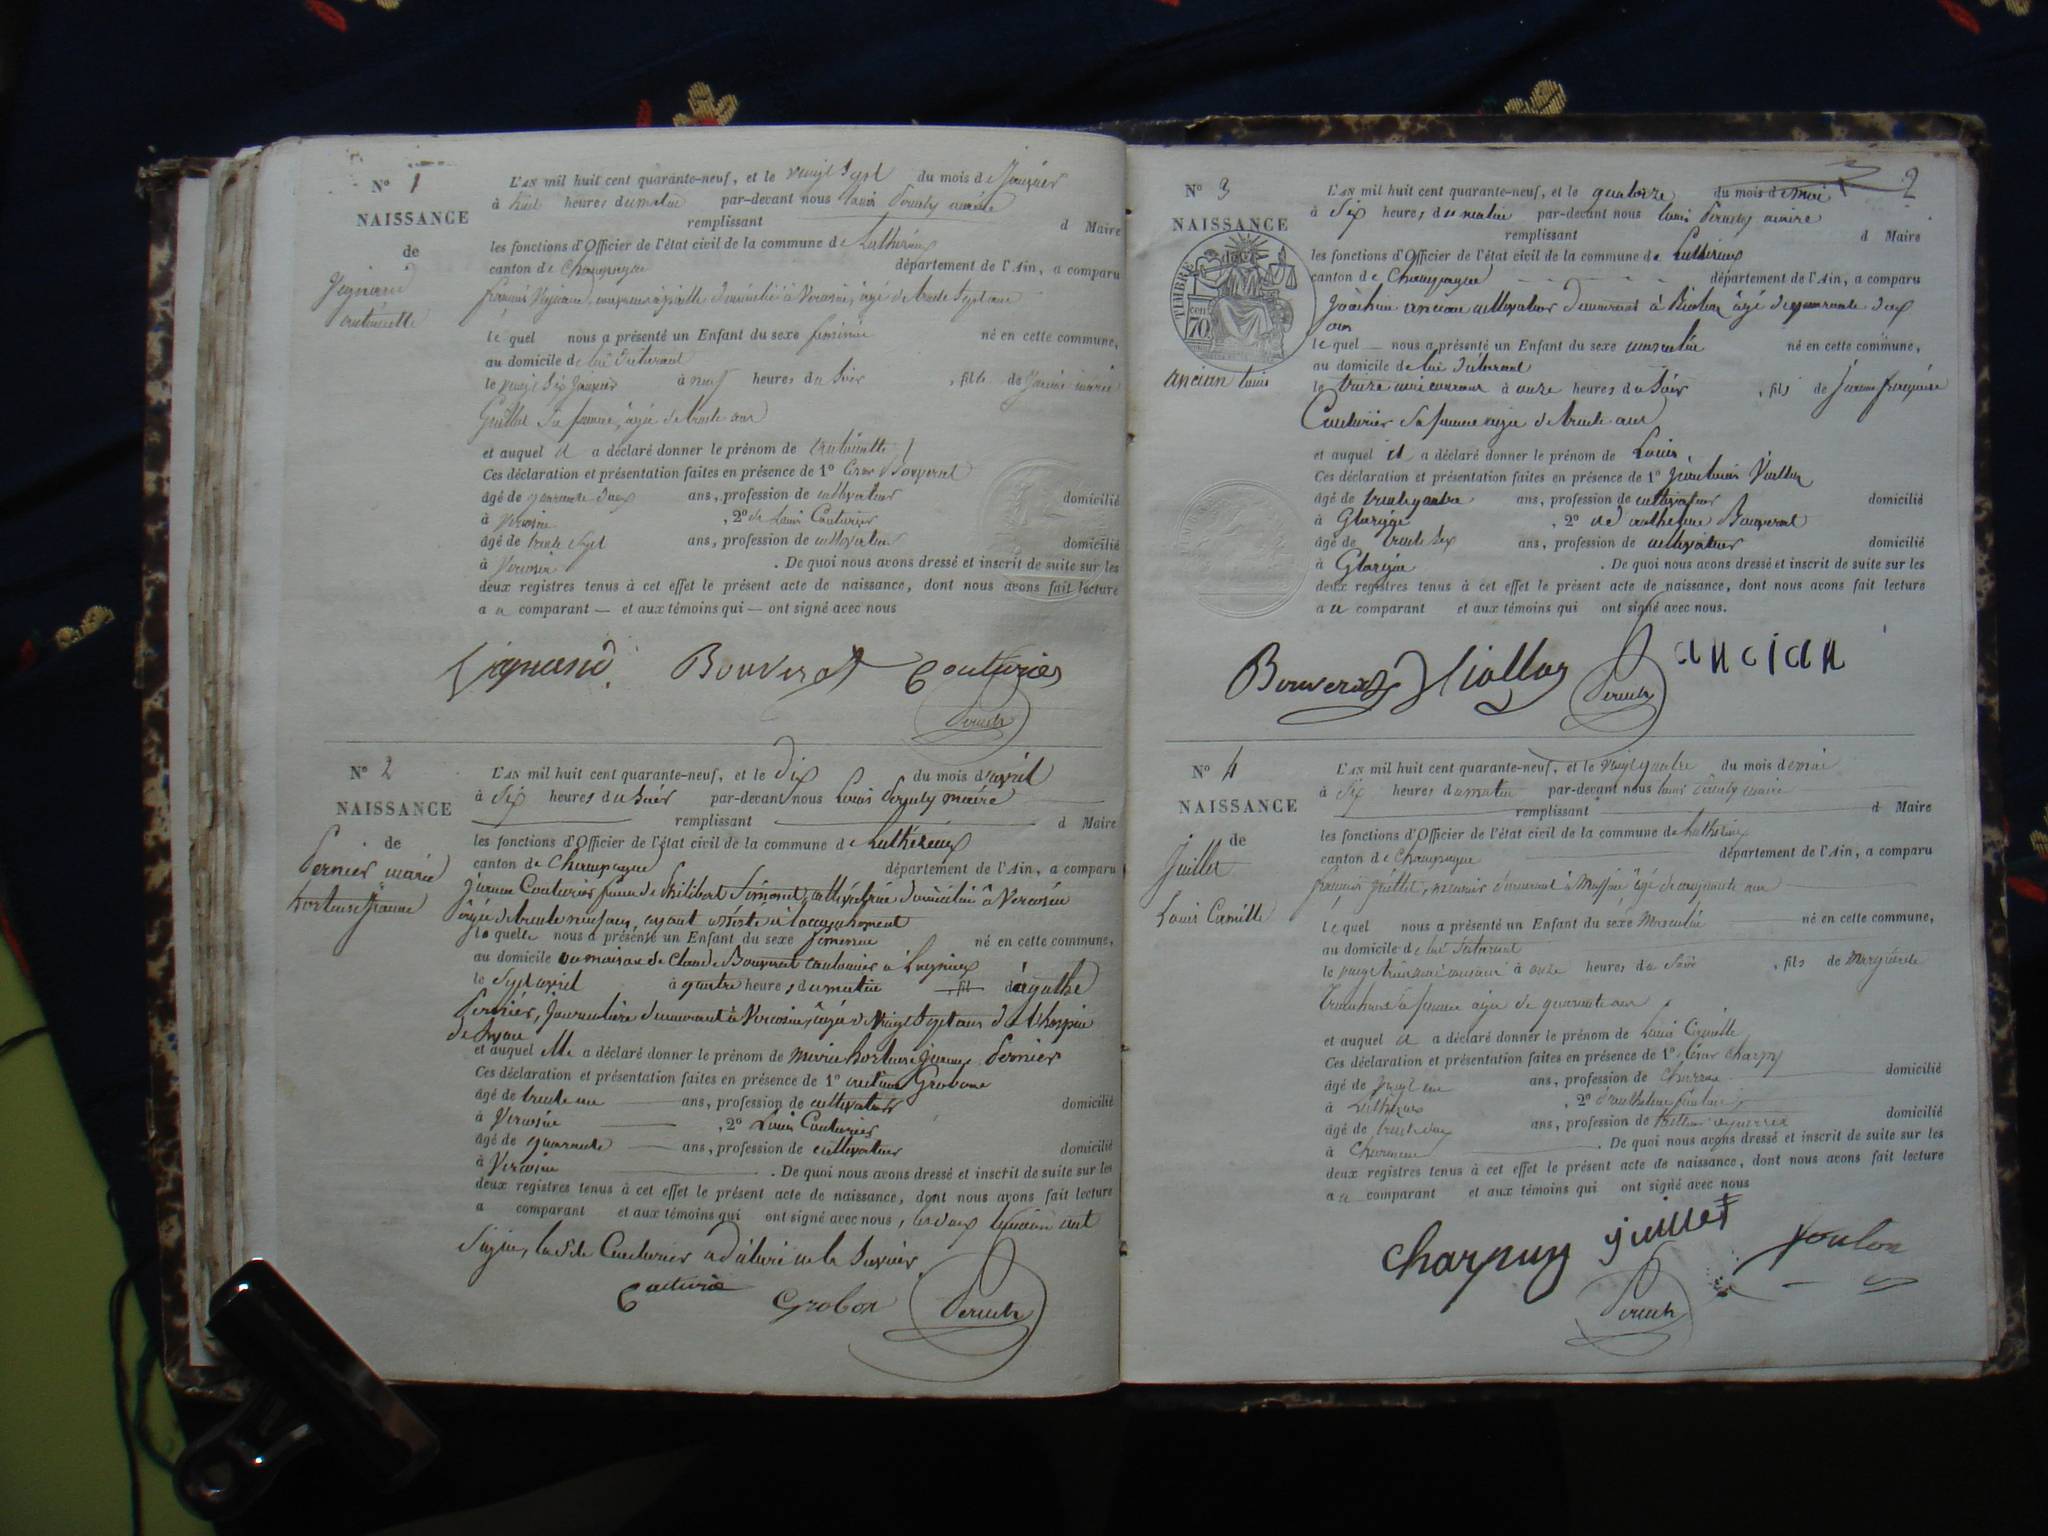 N° 1
NAISSANCE
de
Vignand
antoinette
L'AN mil huit cent quarante-neuf, et le vingt sept du mois de Janvier
à huit heures du matin par-devant nous Louis Peruty maire
remplissant d Maire
les fonctions d'Officier de l'état civil de la commune de Luthézieu
canton de Champagne département de l'Ain, a comparu
françois Vignand, domicilié à Vercosin, âgé de trente sept ans
le quel nous a présenté un Enfant du sexe féminin né en cette commune,
au domicile de lui déclarant
le vingt six Janvier à neuf heures du soir, fille de marie
Guillot sa femme, âgée de trente ans
et auquel il a déclaré donner le prénom de antoinette
Ces déclaration et présentation faites en présence de 1° César Bouverat
âgé de quarante deux ans, profession de cultivateur domicilié
à Vercosin, 2° de Louis Couturier
âgé de trente sept ans, profession de cultivateur domicilié
à Vercosin. De quoi nous avons dressé et inscrit de suite sur les
deux registres tenus à cet effet le présent acte de naissance, dont nous avons fait lecture
a u comparant — et aux témoins qui — ont signé avec nous
Vignand. Bouverat Couturier
Peruty
N° 2
NAISSANCE
de
Pernier marie
hortense Jeanne
L'AN mil huit cent quarante-neuf, et le dix du mois d'avril
à six heures du soir par-devant nous Louis Peruty maire
remplissant d Maire
les fonctions d'Officier de l'état civil de la commune de Luthézieux
canton de Champagne département de l'Ain, a comparu
Jeanne Couturier femme de Philibert Simonet, cultivatrice domiciliée à Vercosin
âgée de trente neuf ans, ayant assisté à l'accouchement
la quelle nous a présenté un Enfant du sexe féminin né en cette commune,
au domicile ou maison de Claude Bouverat cantonier à
le sept avril à quatre heures du matin, fil d'agathe
Pernier, Journalière demeurant à Vercosin, âgée de vingt sept ans de l'hospice
de
et auquel elle a déclaré donner le prénom de marie hortense jeanne Pernier
Ces déclaration et présentation faites en présence de 1° Grobon
âgé de trente un ans, profession de cultivateur domicilié
à Vercosin, 2° Louis Couturier
âgé de quarante ans, profession de cultivateur domicilié
à Vercosin. De quoi nous avons dressé et inscrit de suite sur les
deux registres tenus à cet effet le présent acte de naissance, dont nous avons fait lecture
a comparant et aux témoins qui ont signé avec nous, les deux témoins ont
signé, la dite Couturier a déclaré ne le savoir
Couturier Grobon Peruty
2
N° 3
NAISSANCE
TIMBRE
cen 70
ancian Louis
L'AN mil huit cent quarante-neuf, et le quatorze du mois de mai
à six heures du matin par-devant nous Louis Peruty maire
remplissant d Maire
les fonctions d'Officier de l'état civil de la commune de Luthézieux
canton de Champagne département de l'Ain, a comparu
Joachim ancian cultivateur demeurant à âgé de quarante deux
ans
le quel nous a présenté un Enfant du sexe masculin né en cette commune,
au domicile de lui déclarant
le treize mai courant à onze heures du soir, fils de Jeanne françoise
Couturier sa femme âgée de trente ans
et auquel il a déclaré donner le prénom de Louis
Ces déclaration et présentation faites en présence de 1° Jean Louis Viallon
âgé de trente quatre ans, profession de cultivateur domicilié
à Glarige, 2° de anthelme Bouverat
âgé de trente six ans, profession de cultivateur domicilié
à Glarige. De quoi nous avons dressé et inscrit de suite sur les
deux registres tenus à cet effet le présent acte de naissance, dont nous avons fait lecture
a u comparant et aux témoins qui ont signé avec nous.
Bouverat Viallon Peruty ancian
N° 4
NAISSANCE
de
Juillet
Louis Camille
L'AN mil huit cent quarante-neuf, et le vingt quatre du mois de mai
à six heures du matin par-devant nous Louis Peruty maire
remplissant d Maire
les fonctions d'Officier de l'état civil de la commune de Luthézieu
canton de Champagne département de l'Ain, a comparu
françois Juillet, demeurant à âgé de cinquante ans
le quel nous a présenté un Enfant du sexe Masculin né en cette commune,
au domicile de lui déclarant
le vingt trois mai courant à onze heures du soir, fils de marguerite
sa femme âgée de quarante ans
et auquel il a déclaré donner le prénom de Louis Camille
Ces déclaration et présentation faites en présence de 1° César Charpuy
âgé de vingt un ans, profession de domicilié
à Luthézieu, 2° d'anthelme
âgé de trente ans, profession de domicilié
à. De quoi nous avons dressé et inscrit de suite sur les
deux registres tenus à cet effet le présent acte de naissance, dont nous avons fait lecture
a u comparant et aux témoins qui ont signé avec nous
Charpuy juillet
Peruty